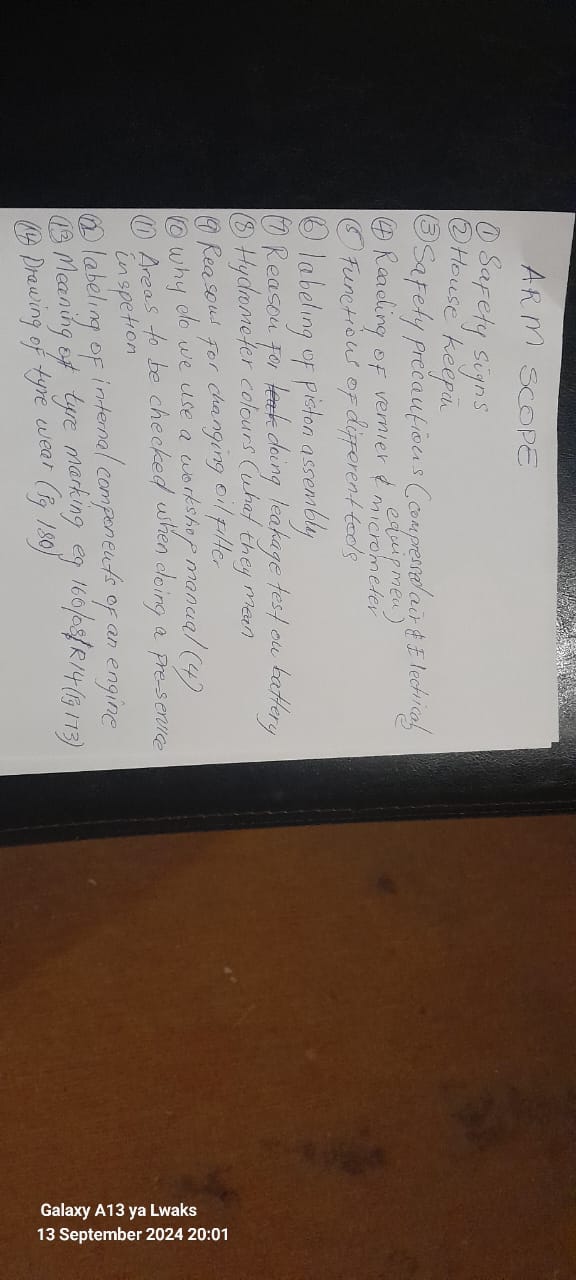 ARM SCOPE
① Safety signs
② House keepin
③ Safety precautions (compressed air & Electrical
equipmen)
④ Reading of vernier & micrometer
⑤ Functions of different tools
⑥ labeling of piston assembly
⑦ Reason for doing leakage test on battery
⑧ Hydrometer colours (what they mean
⑨ Reasons for changing oil filter
⑩ Why do we use a workshop manual (4)
⑪ Areas to be checked when doing a pre-service
inspetion
⑫ labeling of internal components of an engine
⑬ Meaning of tyre marking eg R14 (Pg 173)
⑭ Drawing of tyre wear (Pg 180)
Galaxy A13 ya Lwaks
13 September 2024 20:01